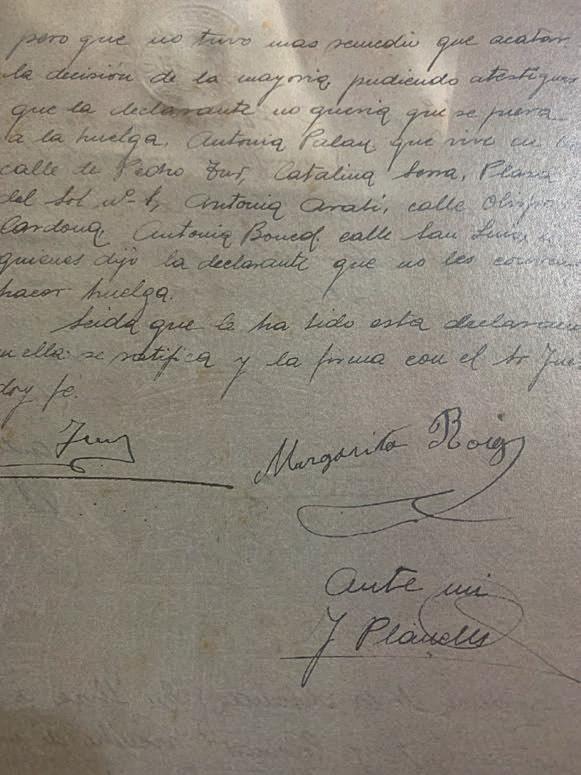 pero que no tuvo mas remedio que acatar
la decisión de la mayoria pudiendo atestiguar
que la declarante no queria que se fuera
a la huelga, Antonia Palau que vive en
calle de Pedro Tur, Catalina Serra, Plaza
del Sol nº Antonia Arabi, calle Obispo
Cardona, Antonia Boned, calle San Luis,
quienes dijo la declarante que no les
hacer huelga.
Leida que le ha sido esta
en ella se ratifica y la firma con el Sr Juez
doy fe.
Margarita Roig
Ante mi
J Planells